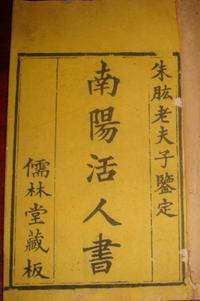 朱肱老夫子鑒定
南陽活人書
儒林堂藏板